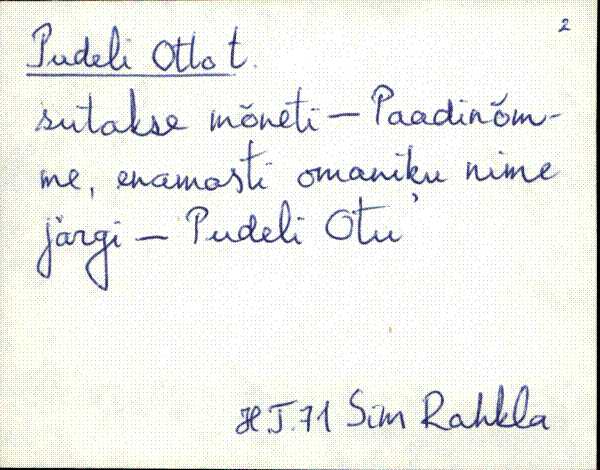 2
Pudeli Otto t.
sutakse mõneti — Paadinõm-
me, enamasti omaniku nime
järgi — Pudeli Ottu'
HJ.71 Sim Rahkla